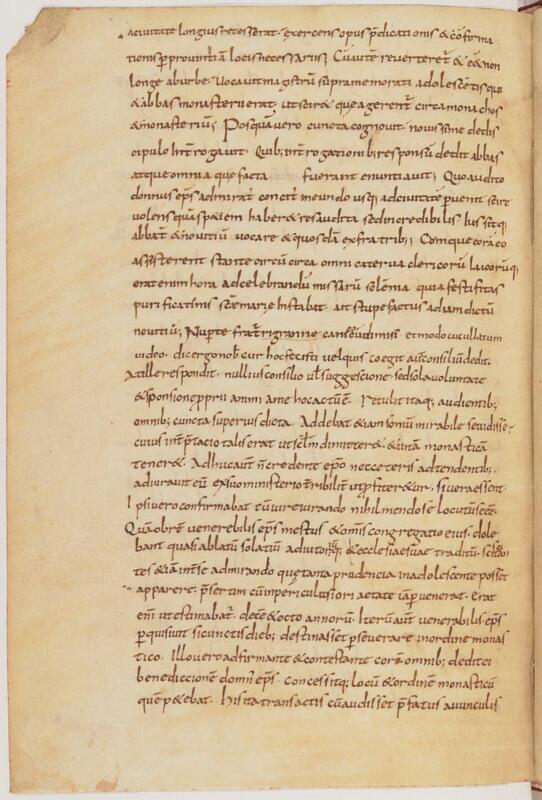 aciuitate longius recesserat. exercens opus p̄dicationis & cōfirma
tionis per prouintiā locis necessariis; Cū autē reuerteret̄ & eēt non
longe aburbe. Uocauit magistrū supramemorati adolescētis qui
& abbas monasterii erat, ut sciret que agerent̄ circa monachos
& monasterius; Posquā uero cuncta cognouit. nouissime dedis
cipulo int̄rogauit. Quib; int̄rogationib; responsū dedit abbas
atque omnia que facta fuerant enuntiauit; Quo audito
domnus ep̄s admirat̄ concit̄ meundo usq; ad ciuitatē puenit scire
uolens quā spaēem haber& res audita sed incredibilis Iussitq;
abbat̄ & nouitiū uocare & quosdā ex fratrib; Cumque corā eo
assisterent stante circū circa omni caterua clericorū laicorūq;
erat enim hora ad celebrandū missarū solēnia quia festiuitas
purificationis scē marie instabat. ait stupefactus adiam dictū
nouitiū; Nuper te frat̄ et modo cucullatum
uideo. dic ergo nob̄ cur hoc fecisti uel quis coegit aut̄ consiliū dedit.
At ille respondit. nullius consilio ul̄ suggescione. sed sola uoluntate
& sponsione p̄prii animi a me hoc actū ē. Retulit itaq; audientib;
omnib; cuncta superius dicta. Addebat & iam somniū mirabile se uidisse.
cuius int̄p̄tacio talis erat ut sc̄lm dimitter& & uitā monasticā
tener&. Adhuc aut̄ n̄ credent̄ ep̄o nec ceteris adtendentib;
adiurant eū ex suo ministerio t̄ribilit̄ ut p̄fiter&ur. si uera essent.
Ipsi uero confirmabat cū iureiurando nihil mendose locutus eēe.
Quā obrē uenerebilis ep̄s mestus & om̄is congregatio eius. dole
bant quasi ablatū solatiū adiutoriiq; & ecclesiae suae traditū.
tes & iā int̄ se admirando que tanta prudencia in adolescente posset
apparere. p̄sertim cū inpericulisiori aetate iā p̄uenerat. Erat
enī ut estimabat̄. decē & octo annorū. Iterū aut̄ uenerabilis ep̄s
perquisiuit si cunctis dieb; destinasset p̄seuerare in ordine monas
tico. Illo uero adfirmante & contestante corā omnib; dedit ei
benediccionē domn̄ ep̄s. concessitq; locū & ordinē monasticū
quē p&ebat. His ita transactis cū audisset p̄fatus auunculis